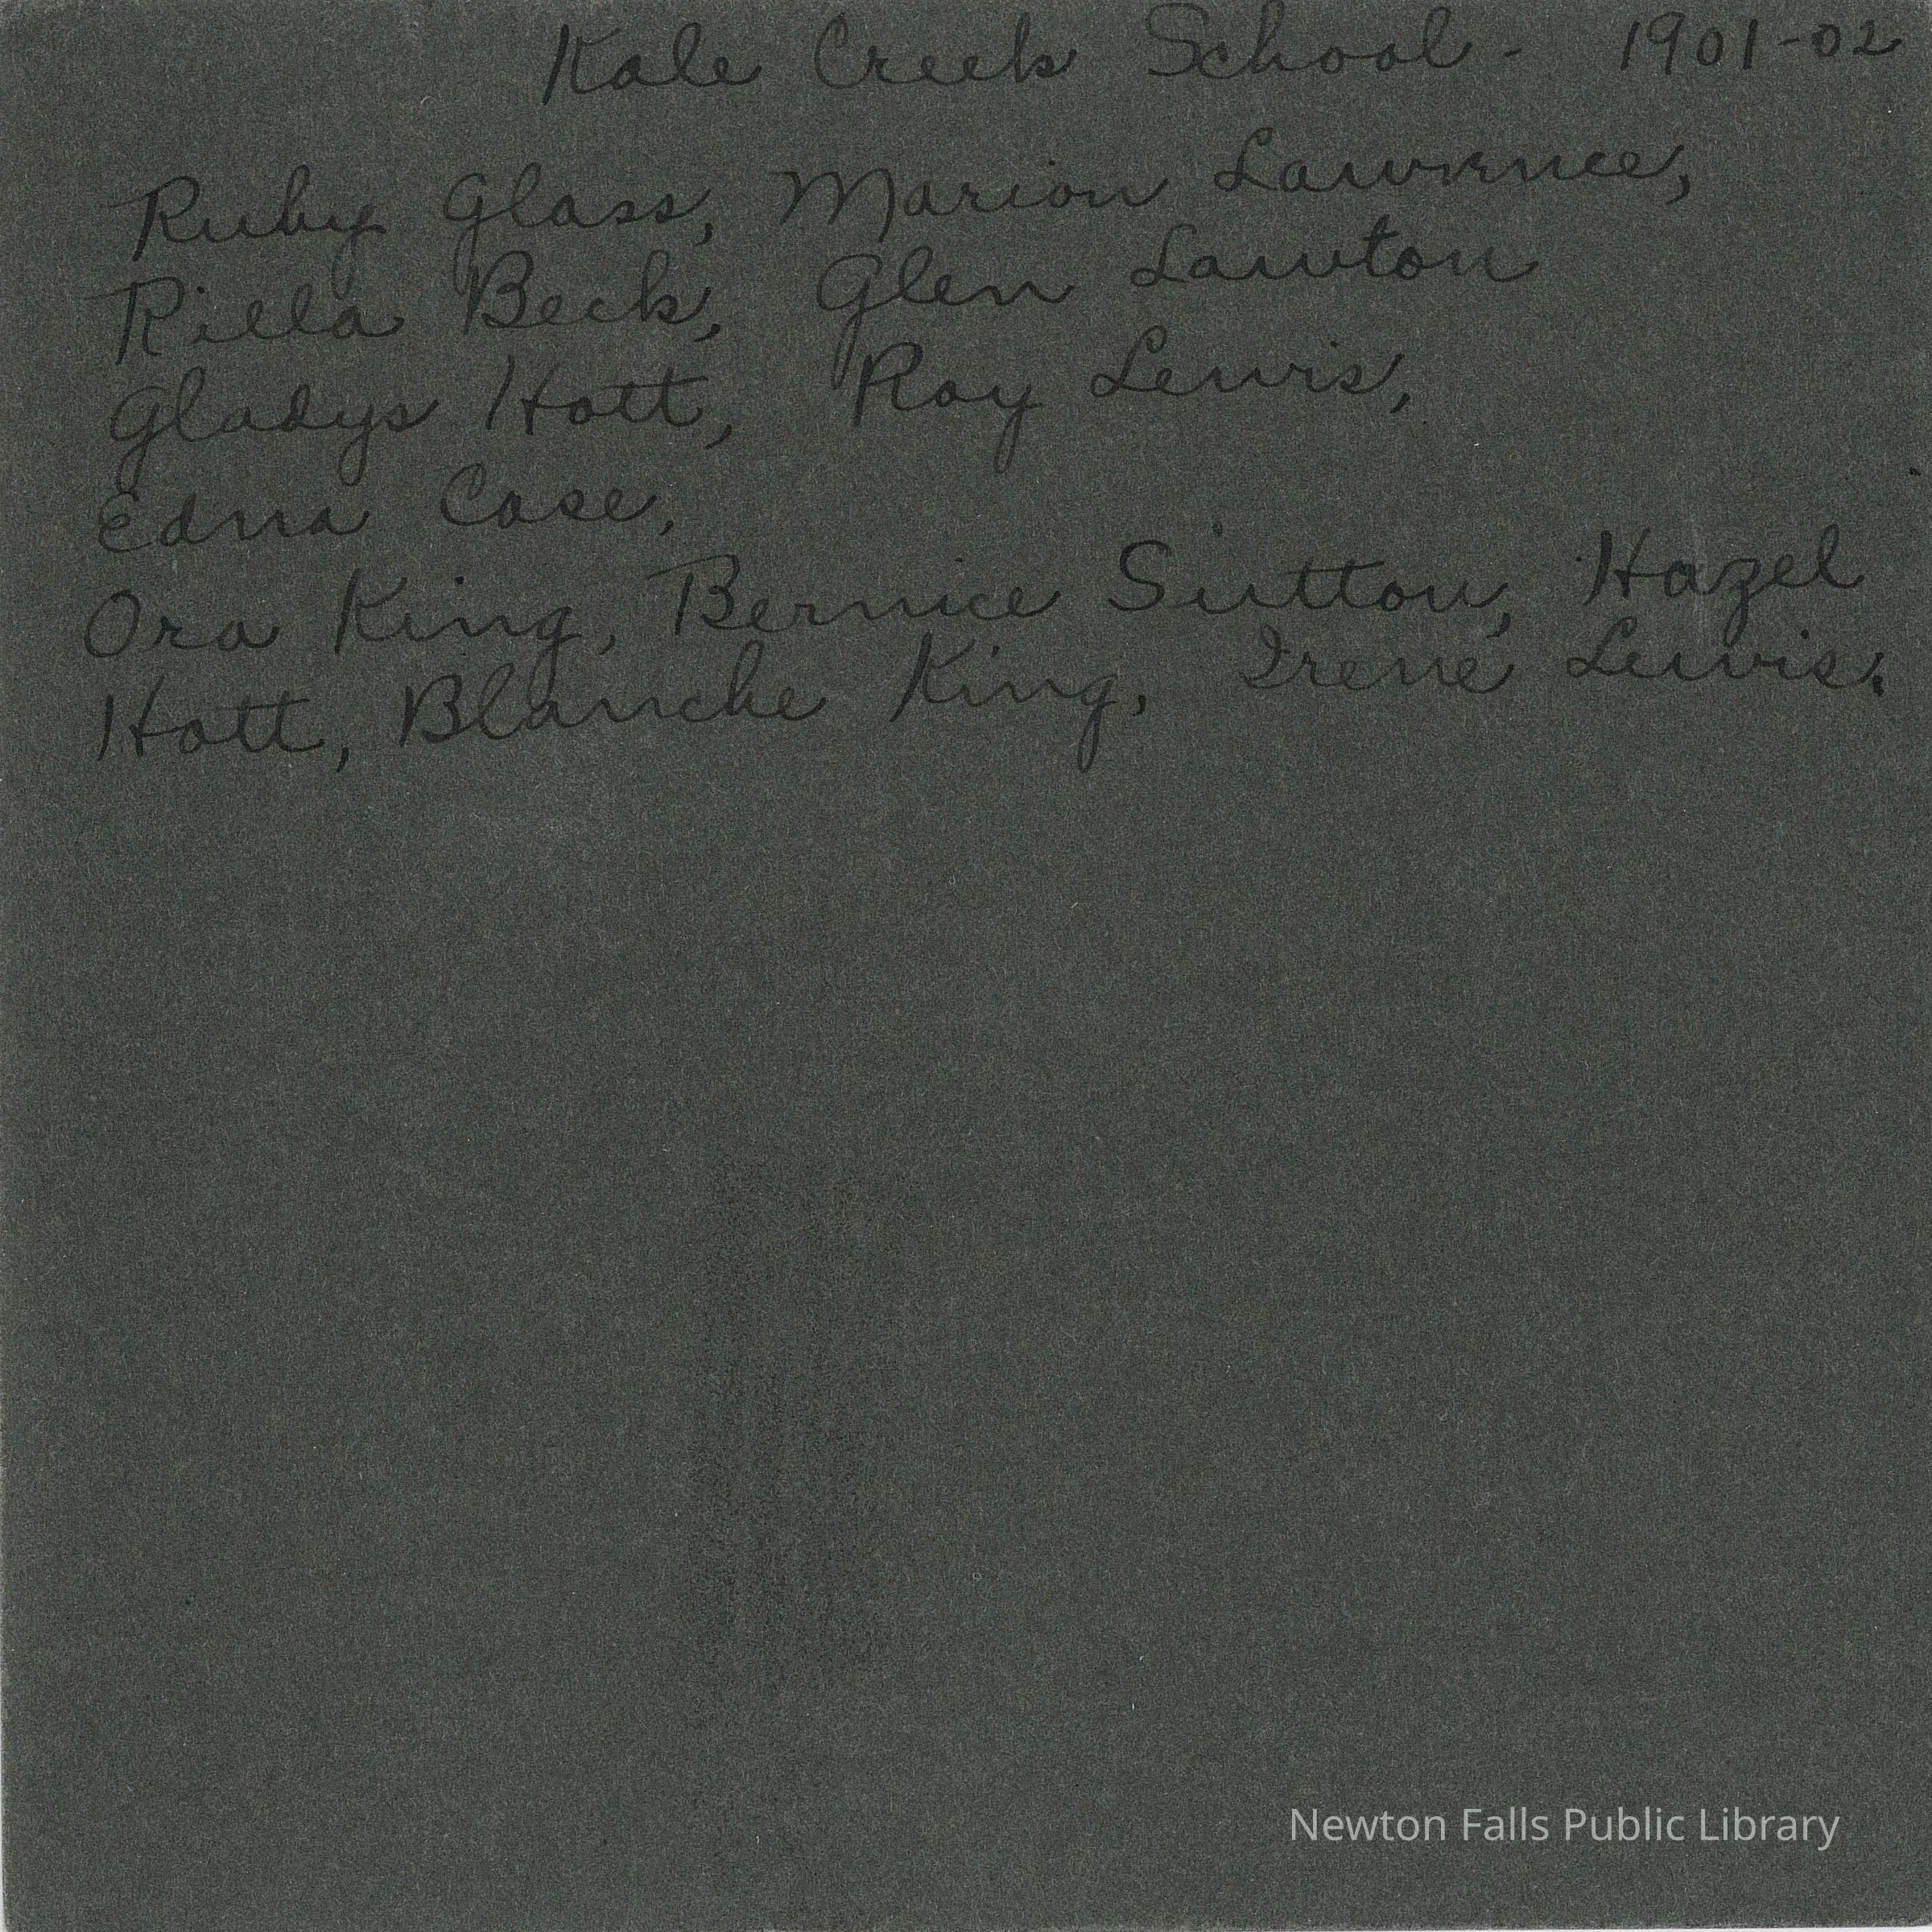 Kale Creek School - 1901-02
Ruby Glass, Marion Lawrence,
Rilla Beck, Glen Lawton
Gladys Hott, Roy Lewis,
Edna Case,
Ora King, Bernice Sutton, Hazel
Hott, Blanche King, Irene Lewis.
Newton Falls Public Library